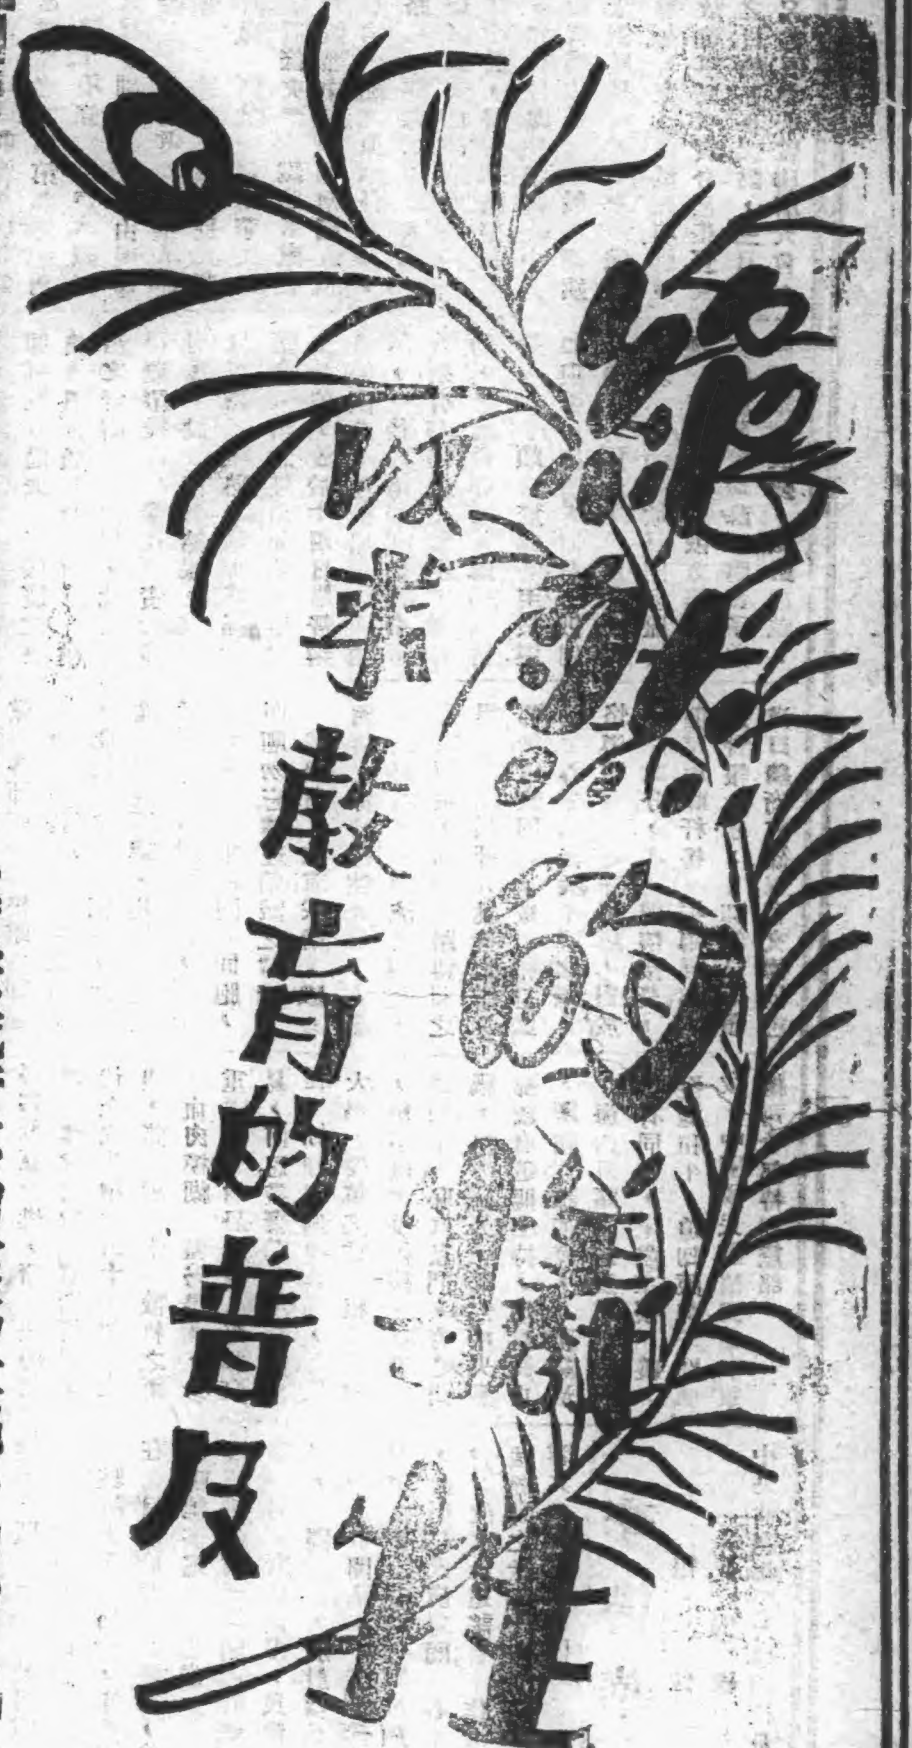 絕然的犧牲
以求教育的普及